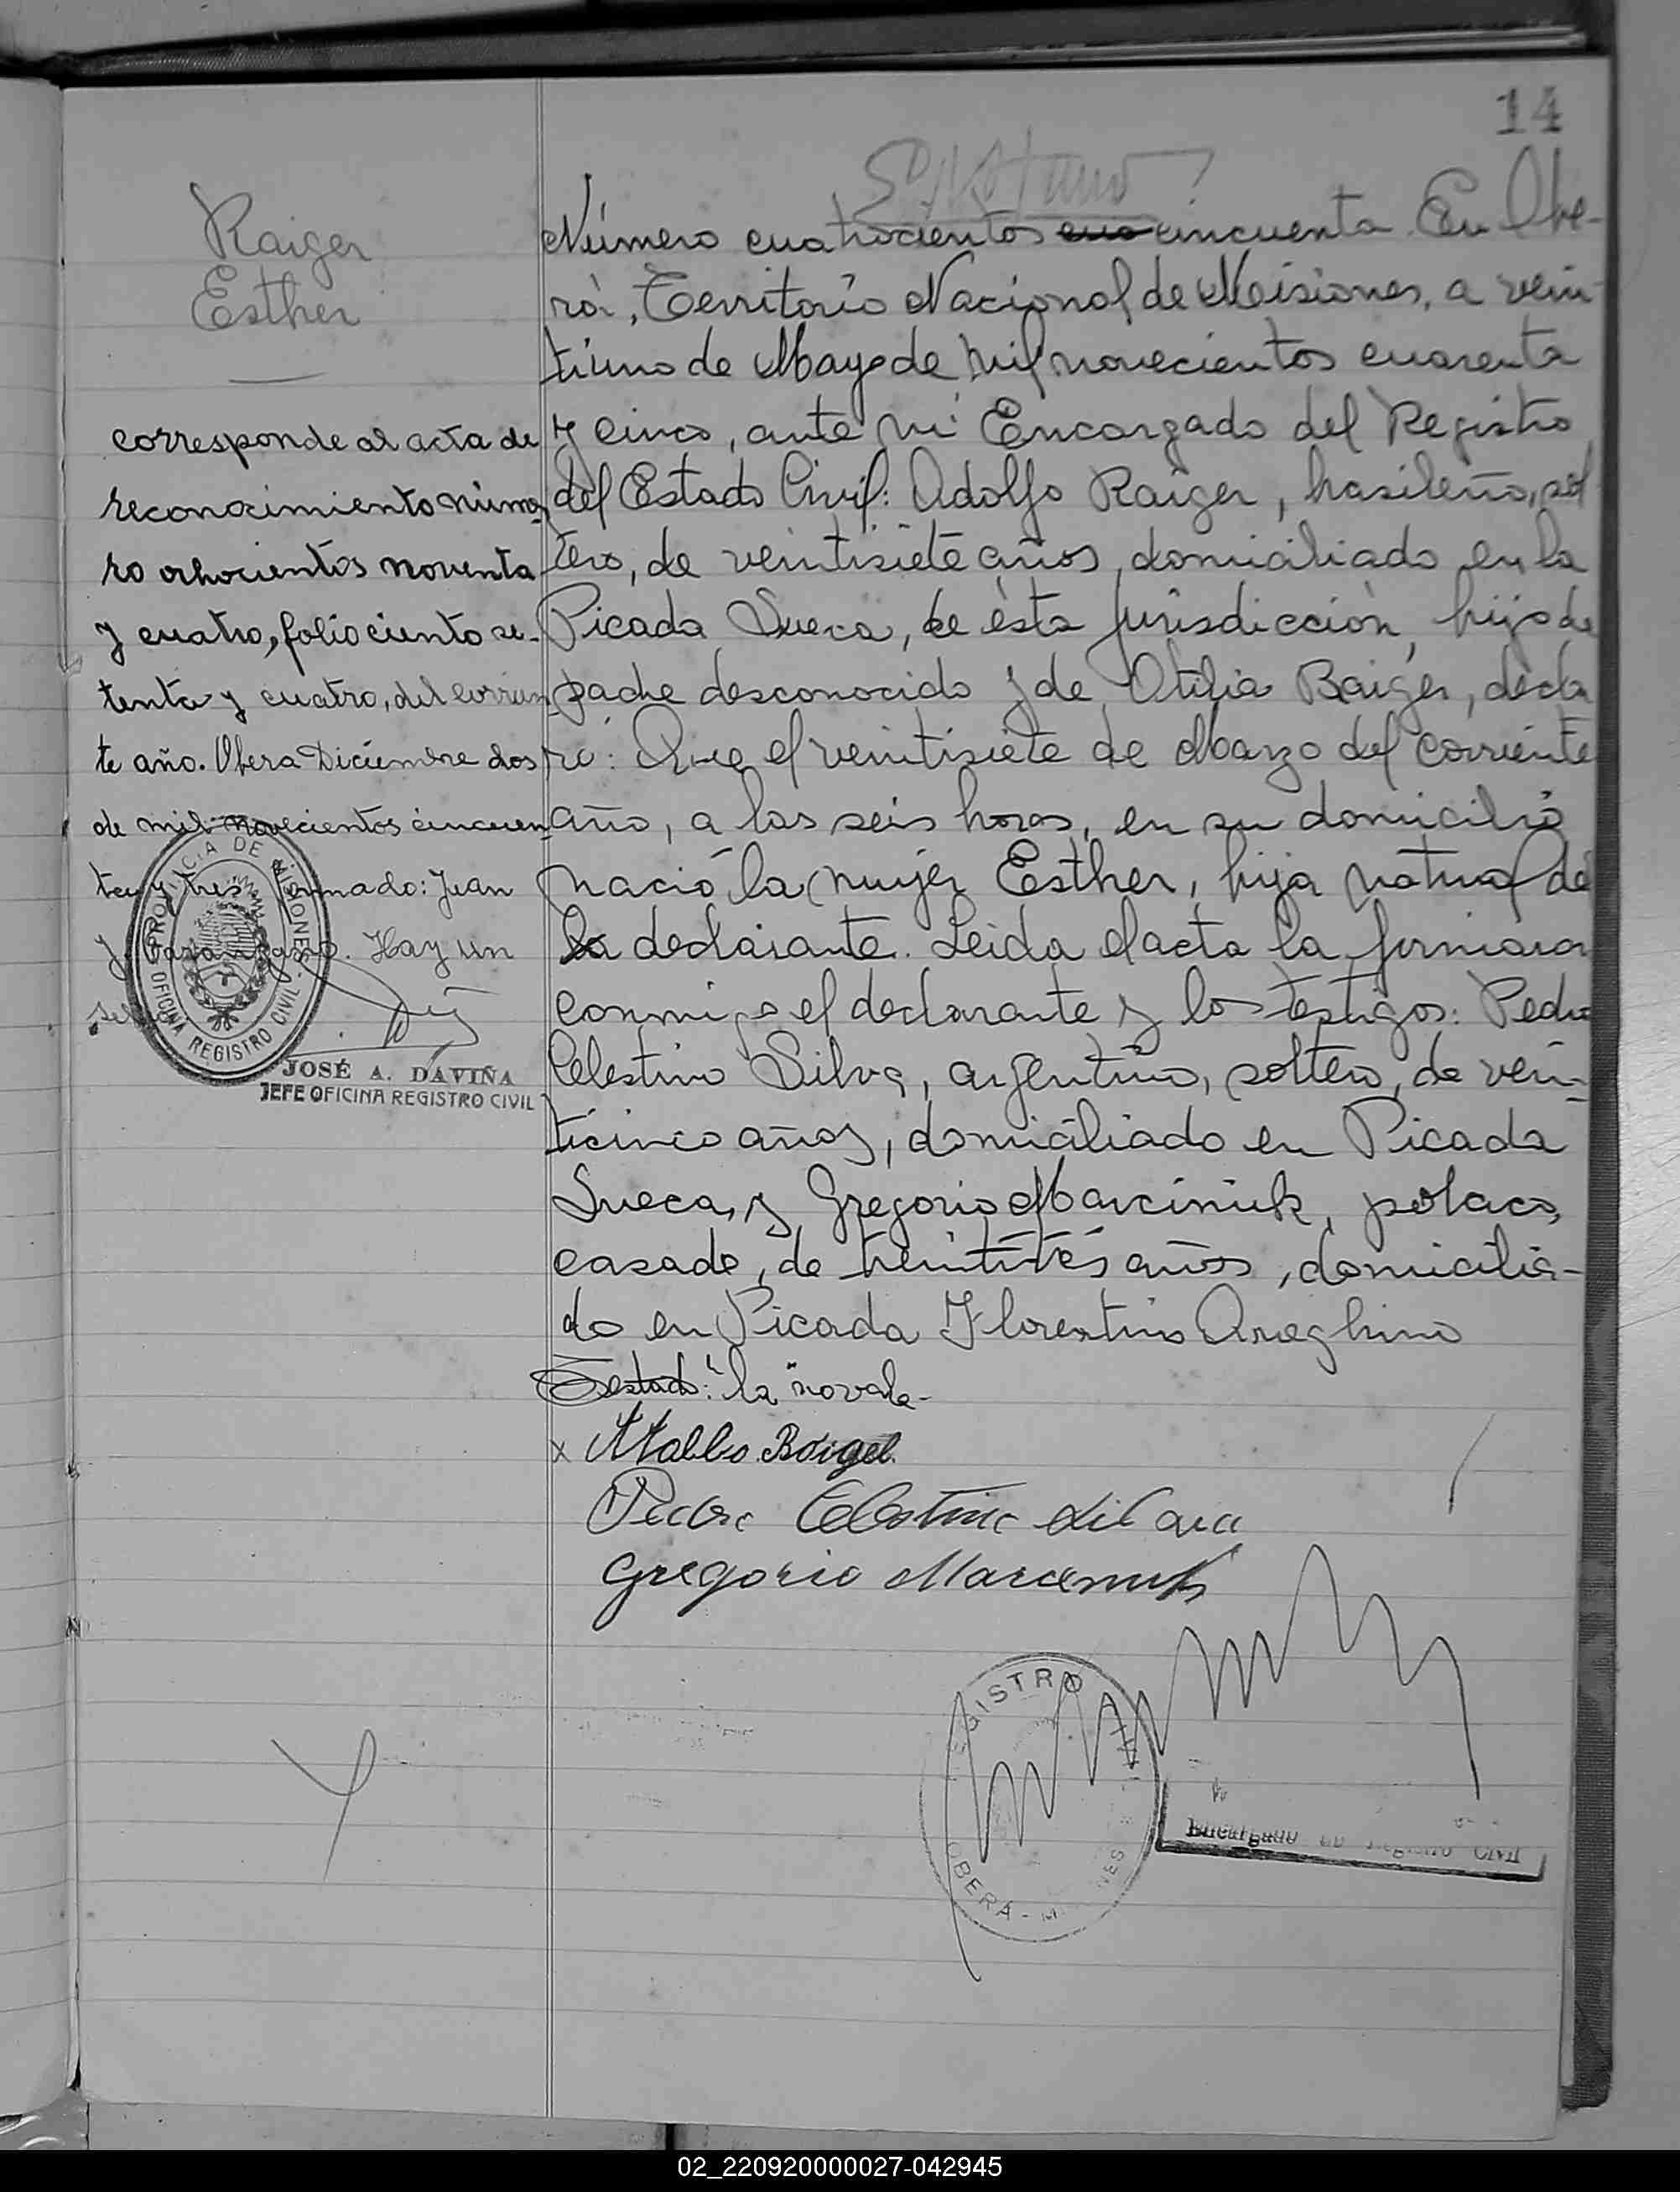 14
Raiger
Esther
corresponde al acta de
reconocimiento núme-
ro ochocientos noventa
y cuatro, folio ciento se-
tenta y cuatro, del corrien-
te año. Obera Diciembre dos
de mil novecientos cincuen-
ta y tres Firmado: Juan
J. Hay un
sello
PROVINCIA DE MISIONES
OFICINA REGISTRO CIVIL
JOSÉ A. DAVIÑA
JEFE OFICINA REGISTRO CIVIL
Número cuatrocientos cua cincuenta. En Obe-
rá, Territorio Nacional de Misiones, a vein-
tiuno de Mayo de mil novecientos cuarenta
y cinco, ante mi Encargado del Registro
del Estado Civil: Adolfo Raiger, brasileño, sol-
tero, de veintisiete años, domiciliado en la
Picada Sueca, de ésta jurisdicción, hijo de
padre desconocido y de Otilia Raiger, decla
ró: Que el veintisiete de Marzo del corriente
año, a las seis horas, en su domicilio
nació la mujer Esther, hija natural de
la declarante. Leida el acta la firmaron
conmigo el declarante y los testigos: Pedro
Celestino Silva, argentino, soltero, de vein-
ticinco años, domiciliado en Picada
Sueca, y Gregorio Marciniuk, polaco,
casado, de treintitrés años, domicilia-
do en Picada Florentino Ameghino
Testado: "la" no vale-
x Boigel
Pedro Celestino Silva
Gregorio Marcinuk
REGISTRO CIVIL
OBERÁ - MISIONES
Encargado del Registro Civil
02_220920000027-042945